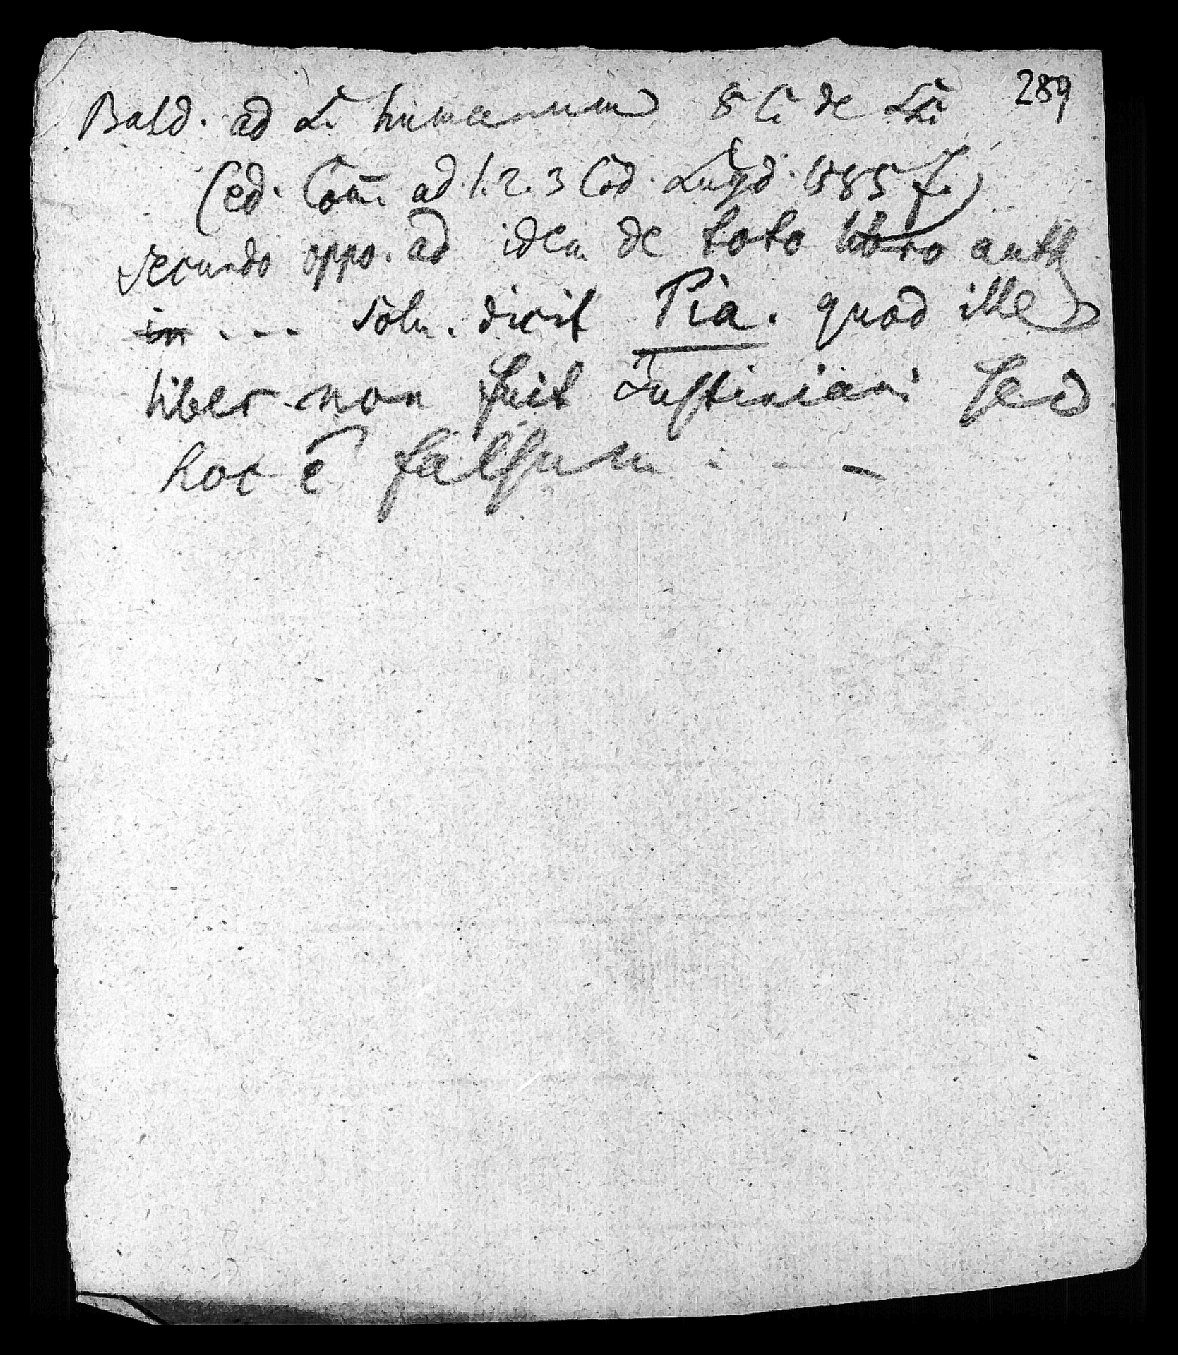 289
Bald. ad L. humanum 8 C. de LL.
(ed. Com. ad l. 2. 3 Cod. Lugd. 1585 f.)
secundo oppo. ad idem de toto libro auth
in - - - Solu. dicit Pia. quod ille
liber non fuit Justiniani sed
hoc ē falsum - - -